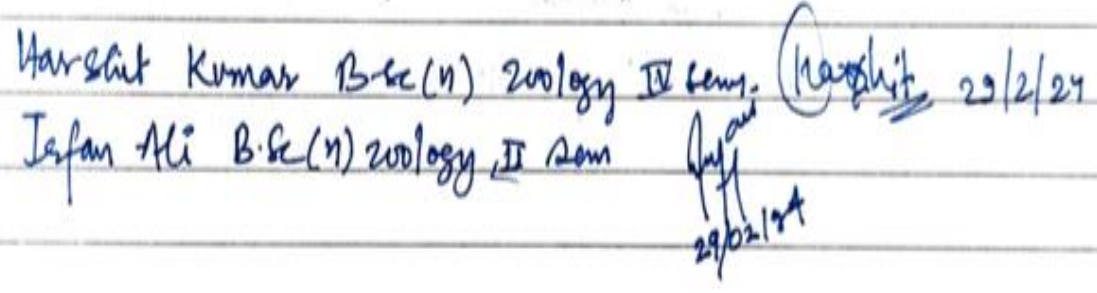 Harshit Kumar B.Sc(H) Zoology IV Sem. Harshit 29/2/24
Irfan Ali B.Sc(H) Zoology, II Sem
29/02/24